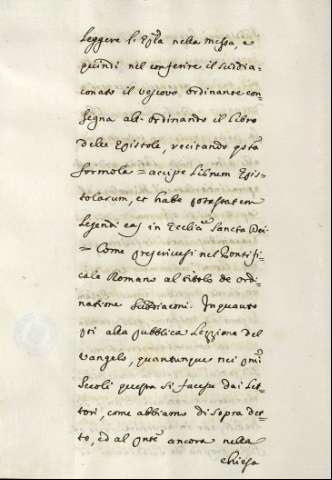 Leggere l'Ep̃la nella messa, e
quindi nel conferire il suddia=
conato il vescovo ordinante con=
segna all'ordinando il libro
delle Epistole, recitando q̃sta
formola = accipe Librum Epis=
tolarum, et habe potestatem
Legendi eas in Ecclia Sancta Dei
= Come prescrivesi nel Pontifi=
cale Romano al titolo de ordi=
natione subdiaconi. Inquanto
poi alla pubblica Lezzione del
vangelo, quantunque nei pmi
secoli questa si facesse dai Let=
tori, come abbiamo di sopra det=
to, ed al pnte ancora nella
chiesa